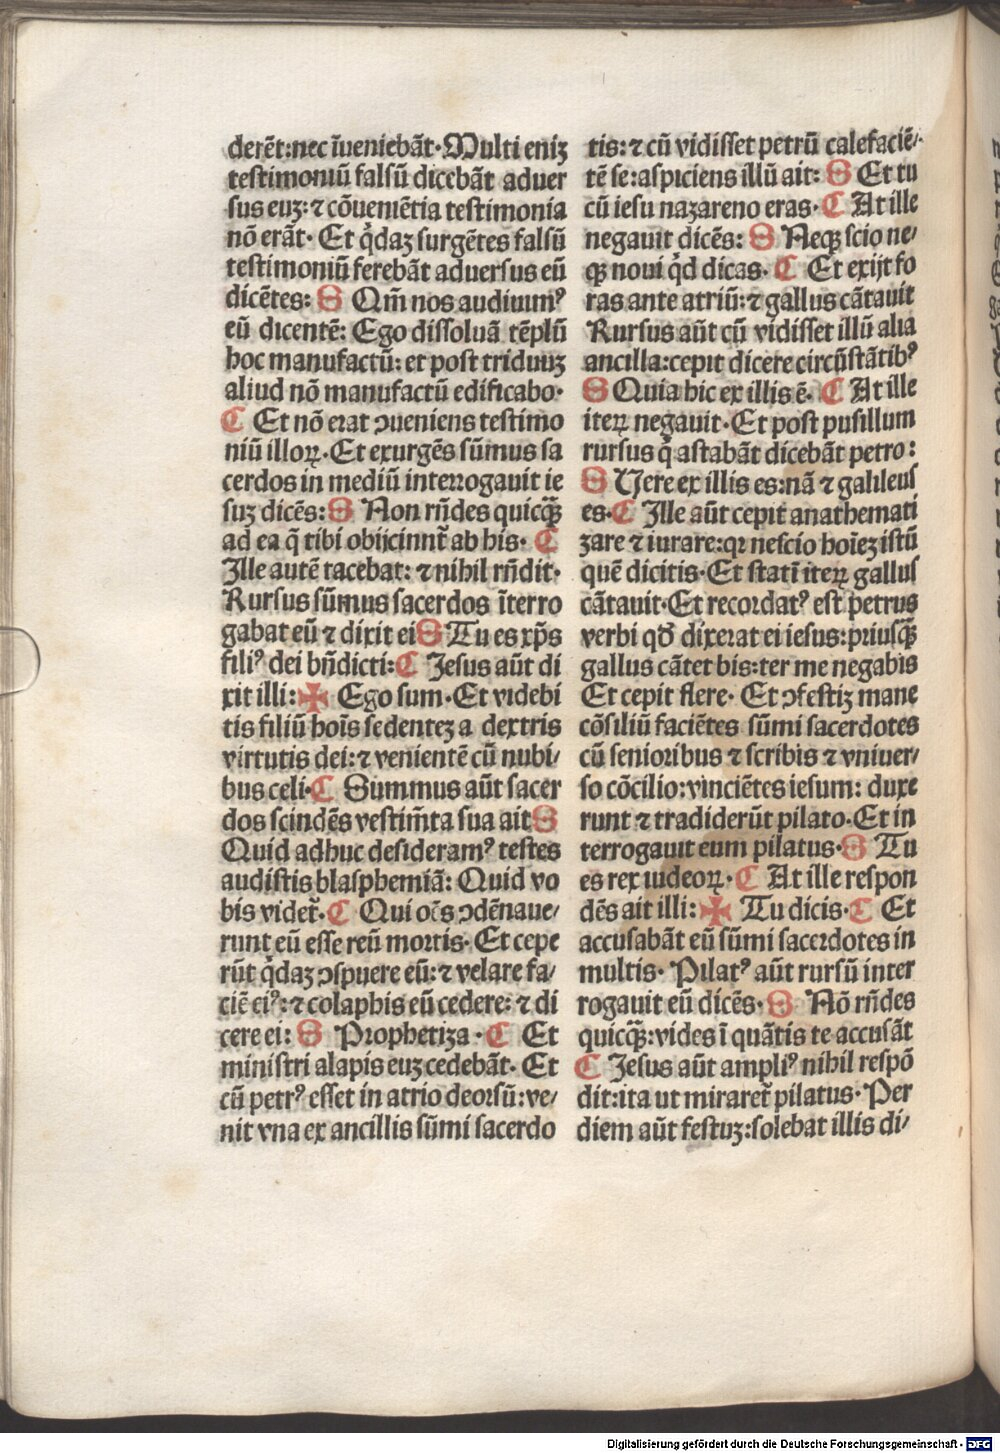 derēt:nec īueniebāt·Multi eniꝫ
testimoniū falsū dicebāt aduer
sus euꝫ:⁊ cōueniētia testimonia
nō erāt· Et q̇daꝫ surgētes falsū
testimoniū ferebāt aduersus eū
dicētes: S Qm̄ nos audiuimꝰ
eū dicentē: Ego dissoluā tēplū
hoc manufactū: et post triduuꝫ
aliud nō manufactū edificabo·
C Et nō erat ꝯueniens testimo
niū illoꝝ·Et exurgēs sūmus sa
cerdos in mediū interrogauit ie
suꝫ dicēs: S Non rn̄des quicq̄ꝫ
ad ea q̄ tibi obijciunt̄ ab his· C
Ille autē tacebat: ⁊ nihil rn̄dit·
Rursus sūmus sacerdos īterro
gabat eū ⁊ dixit ei S Tu es xp̄s
filiꝰ dei bn̄dicti: C Jesus aūt di
xit illi: ✠ Ego sum·Et videbi
tis filiū hoīs sedenteꝫ a dextris
virtutis dei: ⁊ venientē cū nubi/
bus celi· C Summus aūt sacer
dos scindēs vestim̄ta sua ait S
Quid adhuc desideramꝰ testes
audistis blasphemiā: Quid vo
bis videt̄· C Qui oēs ꝯdēnaue/
runt eū esse reū mortis· Et cepe
rūt q̇daꝫ ꝯspuere eū: ⁊ velare fa/
ciē eiꝰ: ⁊ colaphis eū cedere: ⁊ di
cere ei: S Prophetiza · C Et
ministri alapis euꝫ cedebāt· Et
cū petrꝰ esset in atrio deorsū: ve/
nit vna ex ancillis sūmi sacerdo
tis: ⁊ cū vidisset petrū calefaciē/
tē se: aspiciens illū ait: S Et tu
cū iesu nazareno eras· C At ille
negauit dicēs: S Neqꝫ scio ne/
qꝫ noui q̇d dicas· C Et exijt fo
ras ante atriū: ⁊ gallus cātauit
Rursus aūt cū vidisset illū alia
ancilla: cepit dicere circūstātibꝰ
S Quia hic ex illis ē· C At ille
iteꝝ negauit·Et post pusillum
rursus q̇ astabāt dicebāt petro:
S Uere ex illis es: nā ⁊ galileus
es· C Ille aūt cepit anathemati
zare ⁊ iurare: qꝛ nescio hoīeꝫ istū
quē dicitis·Et statī iteꝝ gallus
cātauit·Et recordatꝰ est petrus
verbi qď dixerat ei iesus: priusq̄ꝫ
gallus cātet bis: ter me negabis
Et cepit flere· Et ꝯfestiꝫ mane
cōsiliū faciētes sūmi sacerdotes
cū senioribus ⁊ scribis ⁊ vniuer/
so cōcilio: vinciētes iesum: duxe
runt ⁊ tradiderūt pilato·Et in
terrogauit eum pilatus· S Tu
es rex iudeoꝝ· C At ille respon
dēs ait illi: ✠ Tu dicis· C Et
accusabāt eū sūmi sacerdotes in
multis· Pilatꝰ aūt rursū inter
rogauit eū dicēs· S Nō rn̄des
quicq̄ꝫ: vides ī quātis te accusāt
C Jesus aūt ampliꝰ nihil respō
dit: ita ut miraret̄ pilatus· Per
diem aūt festuꝫ: solebat illis di/
Digitalisierung gefördert durch die Deutsche Forschungsgemeinschaft - DFG